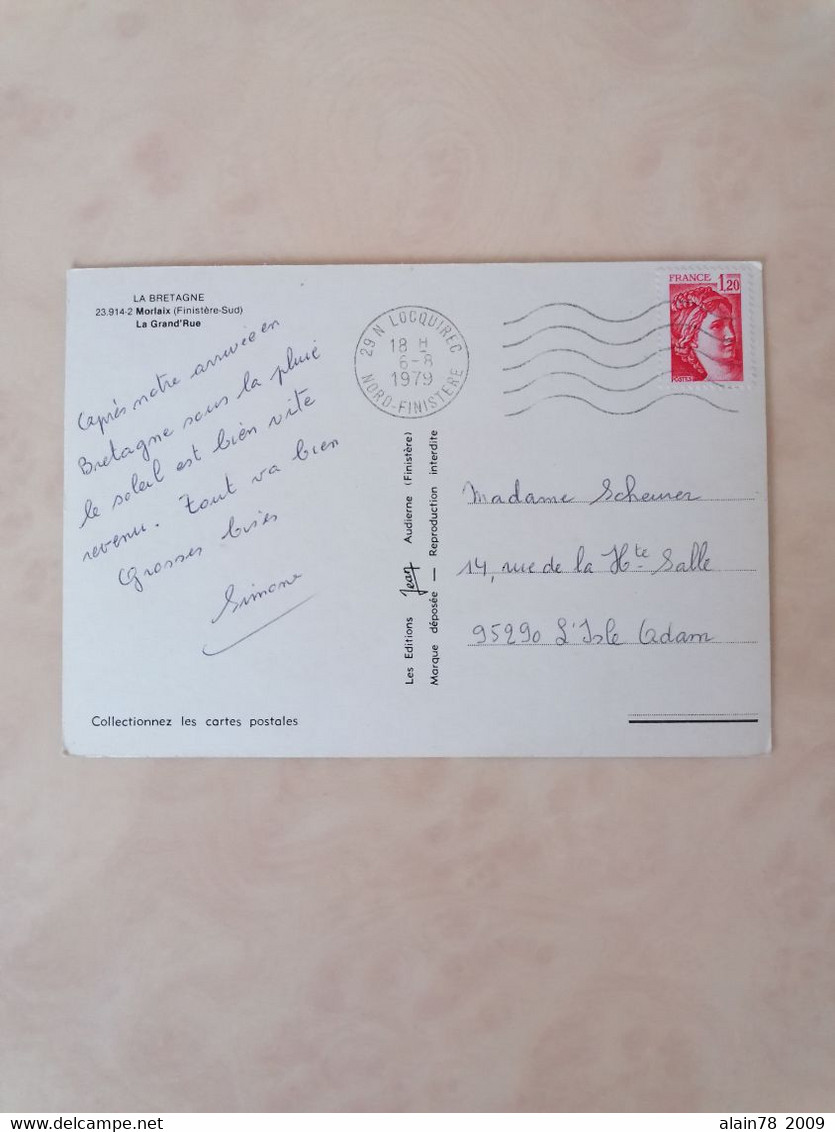 LA BRETAGNE
23.914-2 Morlaix (Finistère-Sud)
La Grand'Rue
après notre arrivée en
Bretagne sous la pluie
le soleil est bien vite
revenu. Tout va bien
Grosses bises
Simone
Collectionnez les cartes postales
Les Editions Jean Audierne (Finistère)
Marque déposée — Reproduction interdite
29 N LOCQUIREC
18 H
6-8
1979
NORD-FINISTERE
FRANCE 1,20
Madame Scheurer
14, rue de la Hte Salle
95290 L'Isle Adam
Delcampe.net
alain78 2009